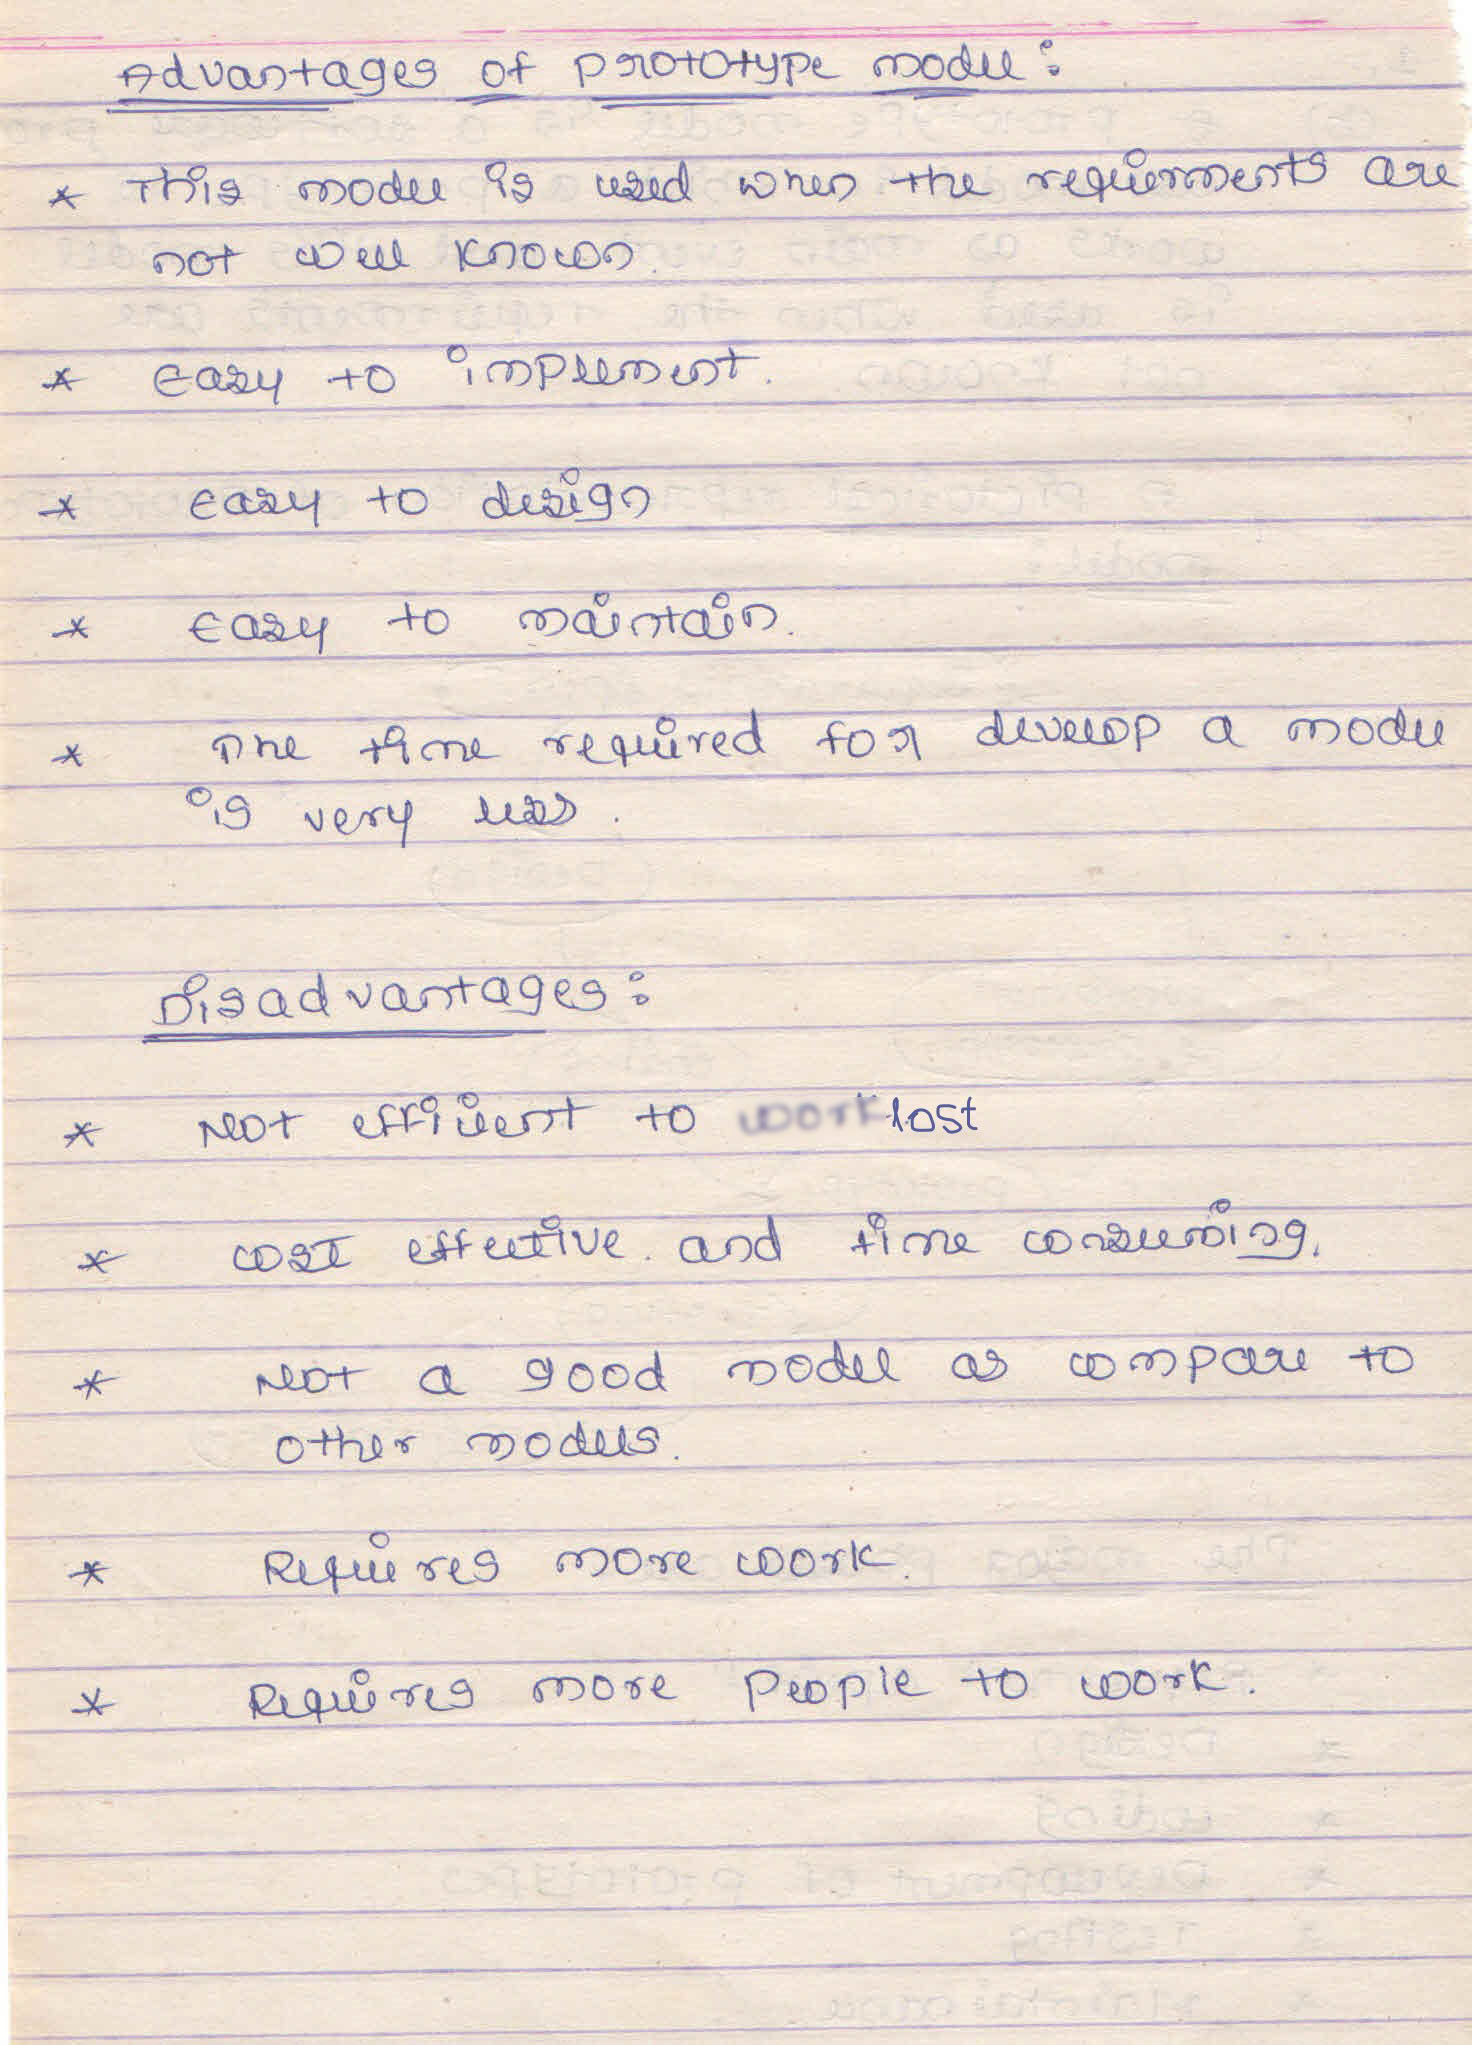 Advantages of prototype model:
* This model is used when the requirments are
not well known.
* Easy to implement.
* Easy to design
* Easy to maintain.
* The time required for develop a model
is very less.
Disadvantages:
* Not efficient to work lost
* cost effective. and time consuming.
* Not a good model as compare to
other models.
* Requires more work.
* Requires more people to work.